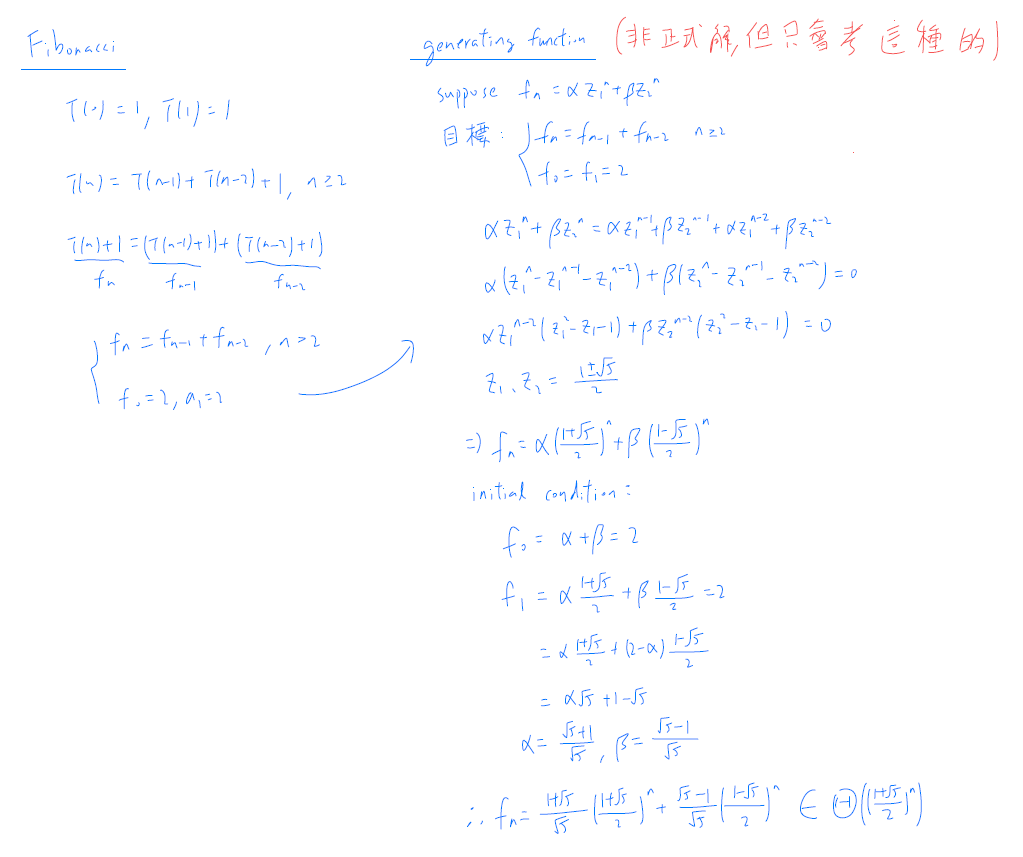 Fibonacci
T(0) = 1, T(1) = 1
T(n) = T(n-1) + T(n-2) + 1, n ≥ 2
T(n)+1 = (T(n-1)+1) + (T(n-2)+1)
fₙ fₙ₋₁ fₙ₋₂
fₙ = fₙ₋₁ + fₙ₋₂, n > 2
f₀ = 2, a₁ = 2
generating function (非正式解,但只會考這種的)
suppose fₙ = αz₁ⁿ + βz₂ⁿ
目標: fₙ = fₙ₋₁ + fₙ₋₂ n ≥ 2
f₀ = f₁ = 2
αz₁ⁿ + βz₂ⁿ = αz₁ⁿ⁻¹ + βz₂ⁿ⁻¹ + αz₁ⁿ⁻² + βz₂ⁿ⁻²
α(z₁ⁿ - z₁ⁿ⁻¹ - z₁ⁿ⁻²) + β(z₂ⁿ - z₂ⁿ⁻¹ - z₂ⁿ⁻²) = 0
αz₁ⁿ⁻²(z₁² - z₁ - 1) + βz₂ⁿ⁻²(z₂² - z₁ - 1) = 0
z₁、z₂ = (1±√5)/2
=) fₙ = α((1+√5)/2)ⁿ + β((1-√5)/2)ⁿ
initial condition:
f₀ = α + β = 2
f₁ = α (1+√5)/2 + β (1-√5)/2 = 2
= α (1+√5)/2 + (2-α) (1-√5)/2
= α√5 + 1 - √5
α = (√5+1)/√5, β = (√5-1)/√5
∴ fₙ = (1+√5)/√5 ((1+√5)/2)ⁿ + (√5-1)/√5 ((1-√5)/2)ⁿ ∈ Θ(((1+√5)/2)ⁿ)